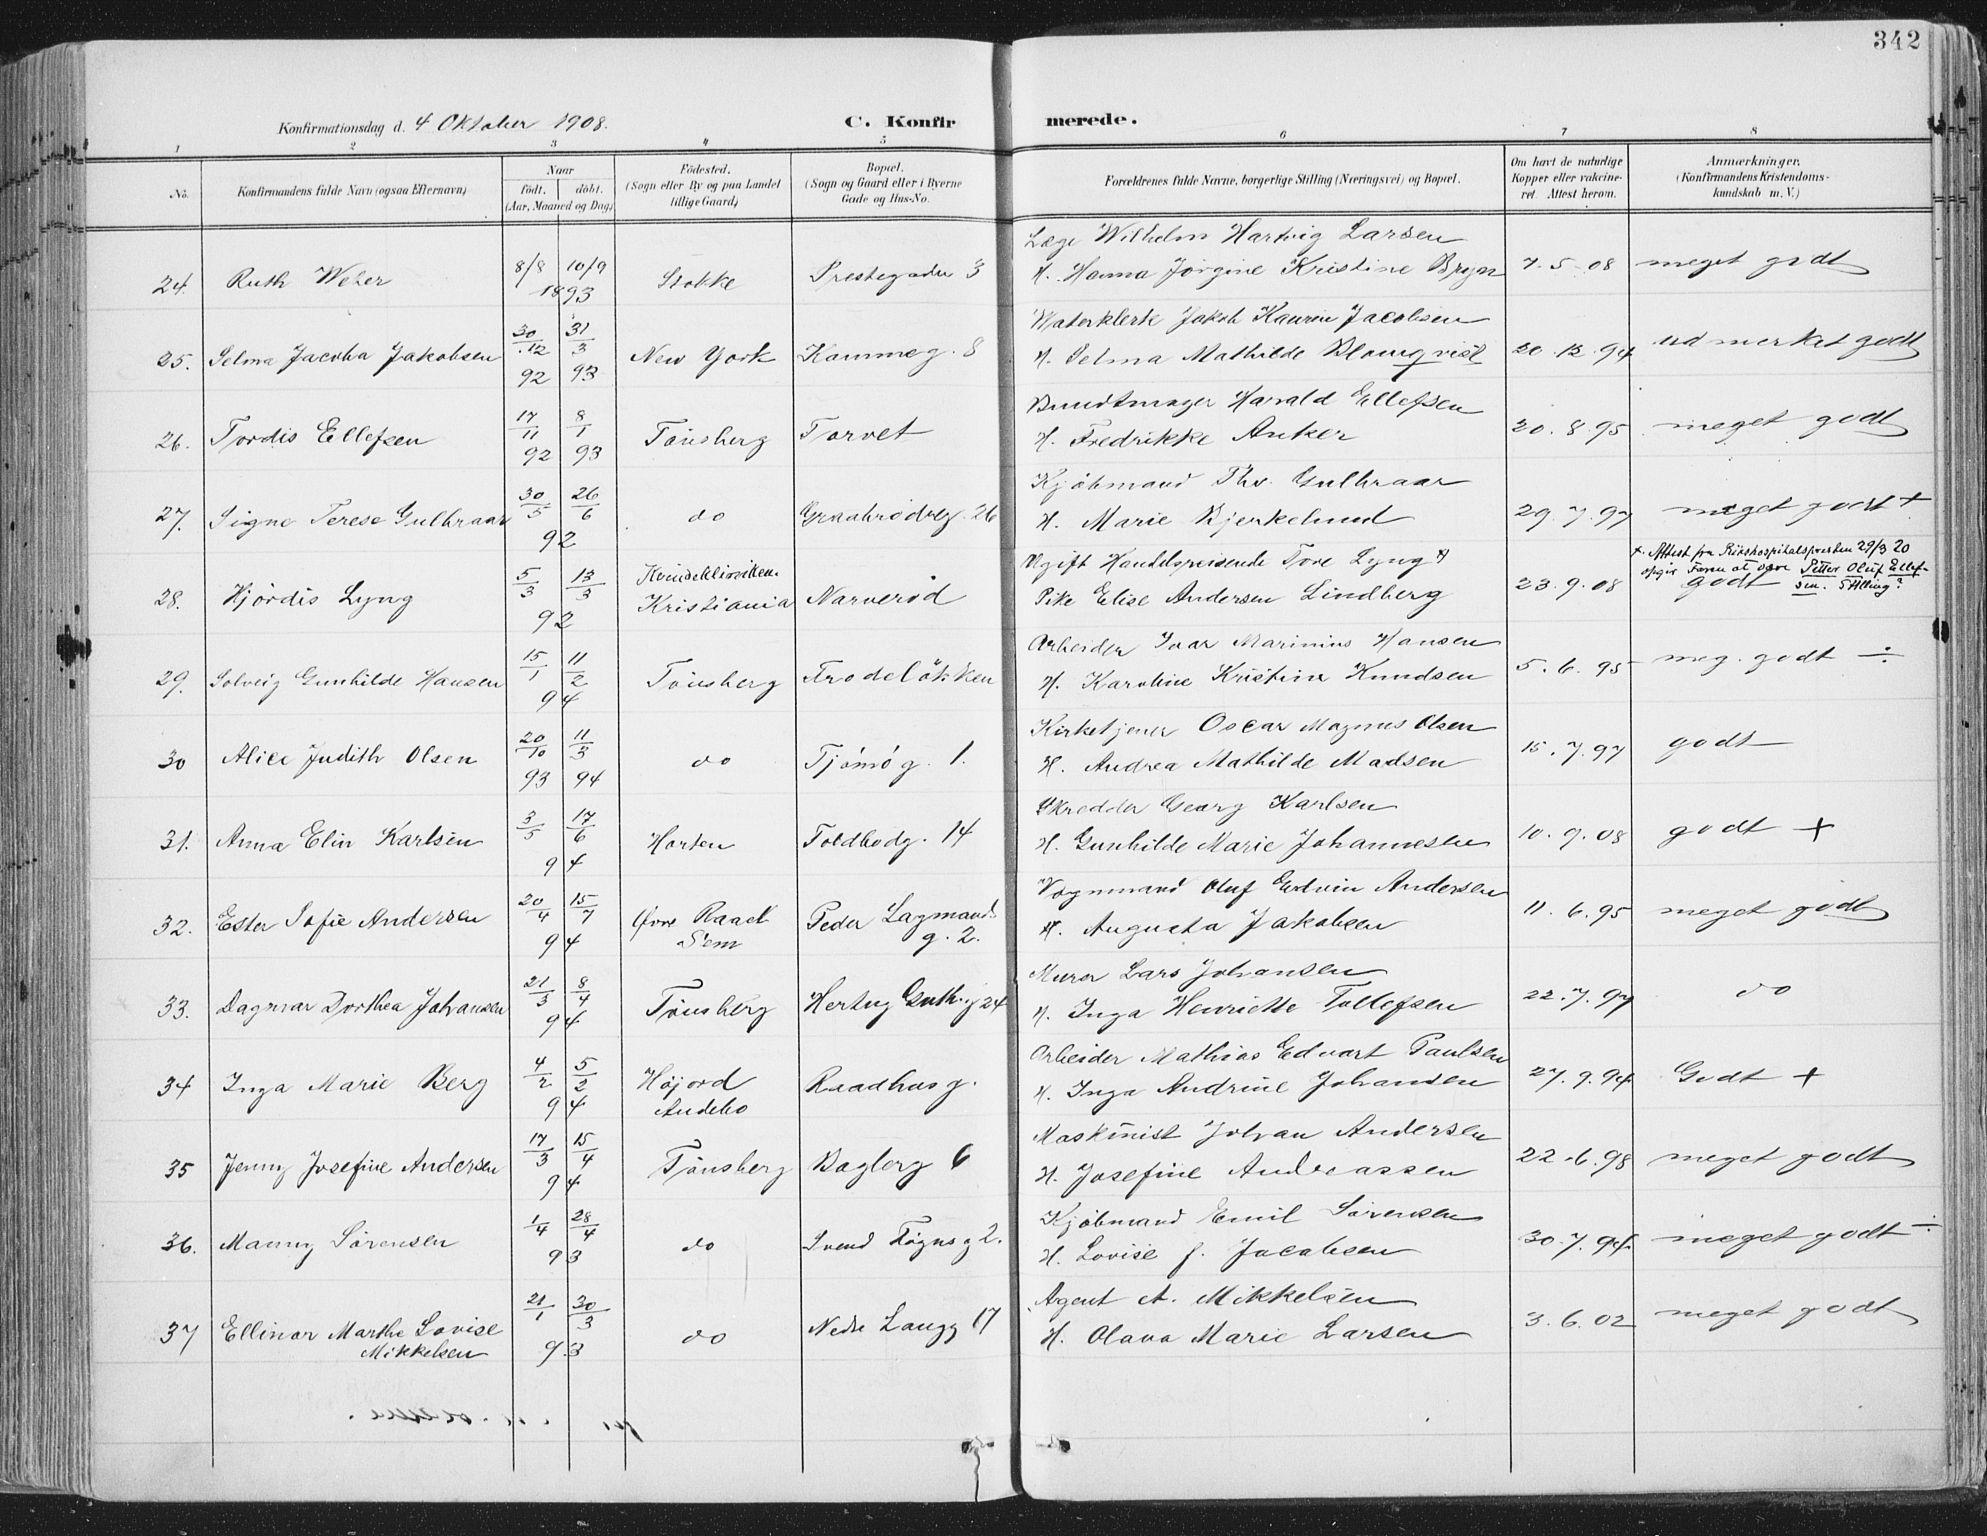 342
Konfirmationsdag d. 4 Oktober 1908.
C. Konfirmerede.
1 2 3 4 5 6 7 8
No. Konfirmandens fulde Navn (ogsaa Efternavn)
Naar født. døbt. (Aar, Maaned og Dag)
Fødested. (Sogn eller By og paa Landet tillige Gaard)
Bopæl. (Sogn og Gaard eller i Byerne Gade og Hus-No.
Forældrenes fulde Navne, borgerlige Stilling (Næringsvei) og Bopæl.
Om havt de naturlige Kopper eller vakcineret. Attest herom.
Anmærkninger. (Konfirmandens Kristendomskundskab m. V.)
Læge Wilhelm Hartvig Larsen
24. Ruth Weber 8/8 10/9 1893 Stokke Prestegaden 3 H. Hanna Jørgine Kristine Bryn 7.5.08 meget godt
Waterklerk Jakob Kaurin Jacobsen
25. Selma Jacoba Jakobsen 30/12 92 31/3 93 New York Kammeg. 8 H. Selma Mathilde Blomqvist 20.12.94 udmerket godt
Bundtmager Harald Ellefsen
26. Tordis Ellefsen 17/11 92 8/1 93 Tønsberg Torvet H. Fredrikke Anker 20.8.95 meget godt
Kjøbmand Thv. Gulbraar
27. Signe Terese Gulbraar 30/5 26/6 92 do Graabrødreg. 26 H. Marie Bjerkelund 29.7.97 meget godt +
Ugift Handelsreisende Tove Lyng +)
+. Attest fra Rikshospitalspresten 29/3 20
opgir Faren at være Petter Oluf Ellefsen. Stilling?
28. Hjördis Lyng 5/3 13/3 92 Kvindeklinikken. Kristiania Narverød Pike Elise Andersen Lindberg 23.9.08 godt
Arbeider Ivar Marinius Hansen
29. Solveig Gunhilde Hansen 15/1 11/2 94 Tønsberg Frodeløkken H. Karoline Kristine Knudsen 5.6.95 meg. godt ÷
Kirketjener Oscar Magnus Olsen
30 Alice Judith Olsen 20/10 93 11/3 94 do Tjømø g. 1. H. Andrea Mathilde Madsen 15.7.97 godt
Skredder Georg Karlsen
31. Anna Elin Karlsen 3/5 17/6 94 Horten Toldbodg. 14 H. Gunhilde Marie Johannesen 10.9.08 godt +
Vognmand Oluf Edvin Andersen
32. Ester Sofie Andersen 20/4 15/7 94 Øvre Raael Sem Peder Lagmands g. 2. H. Augusta Jakobsen 11.6.95 meget godt
Murer Lars Johansen
33. Dagmar Dorthea Johansen 21/3 8/4 94 Tønsberg Hertug Guth. g 24 H. Inga Henriette Tollefsen 22.7.97 do
Arbeider Mathias Edvart Paulsen
34 Inga Marie Berg 4/2 5/2 94 Højord Andebo Raadhusg. H. Inga Andrine Johansen 27.9.94 Godt +
Maskinist Johan Andersen
35 Jenny Josefine Andersen 17/3 15/4 94 Tønsberg Bagberg 6 H. Josefine Andreassen 22.6.98 meget godt
Kjøbmand Emil Sørensen
36. Manny Sørensen 1/4 28/4 93 do Svend Føyns g 2. H. Lovise f. Jacobsen 30.7.94. meget godt ÷
Agent A. Mikkelsen
37 Ellinor Marthe Lovise Mikkelsen 21/1 30/3 93 do Nedre Langg 17 H. Olava Marie Larsen 3.6.02 meget godt